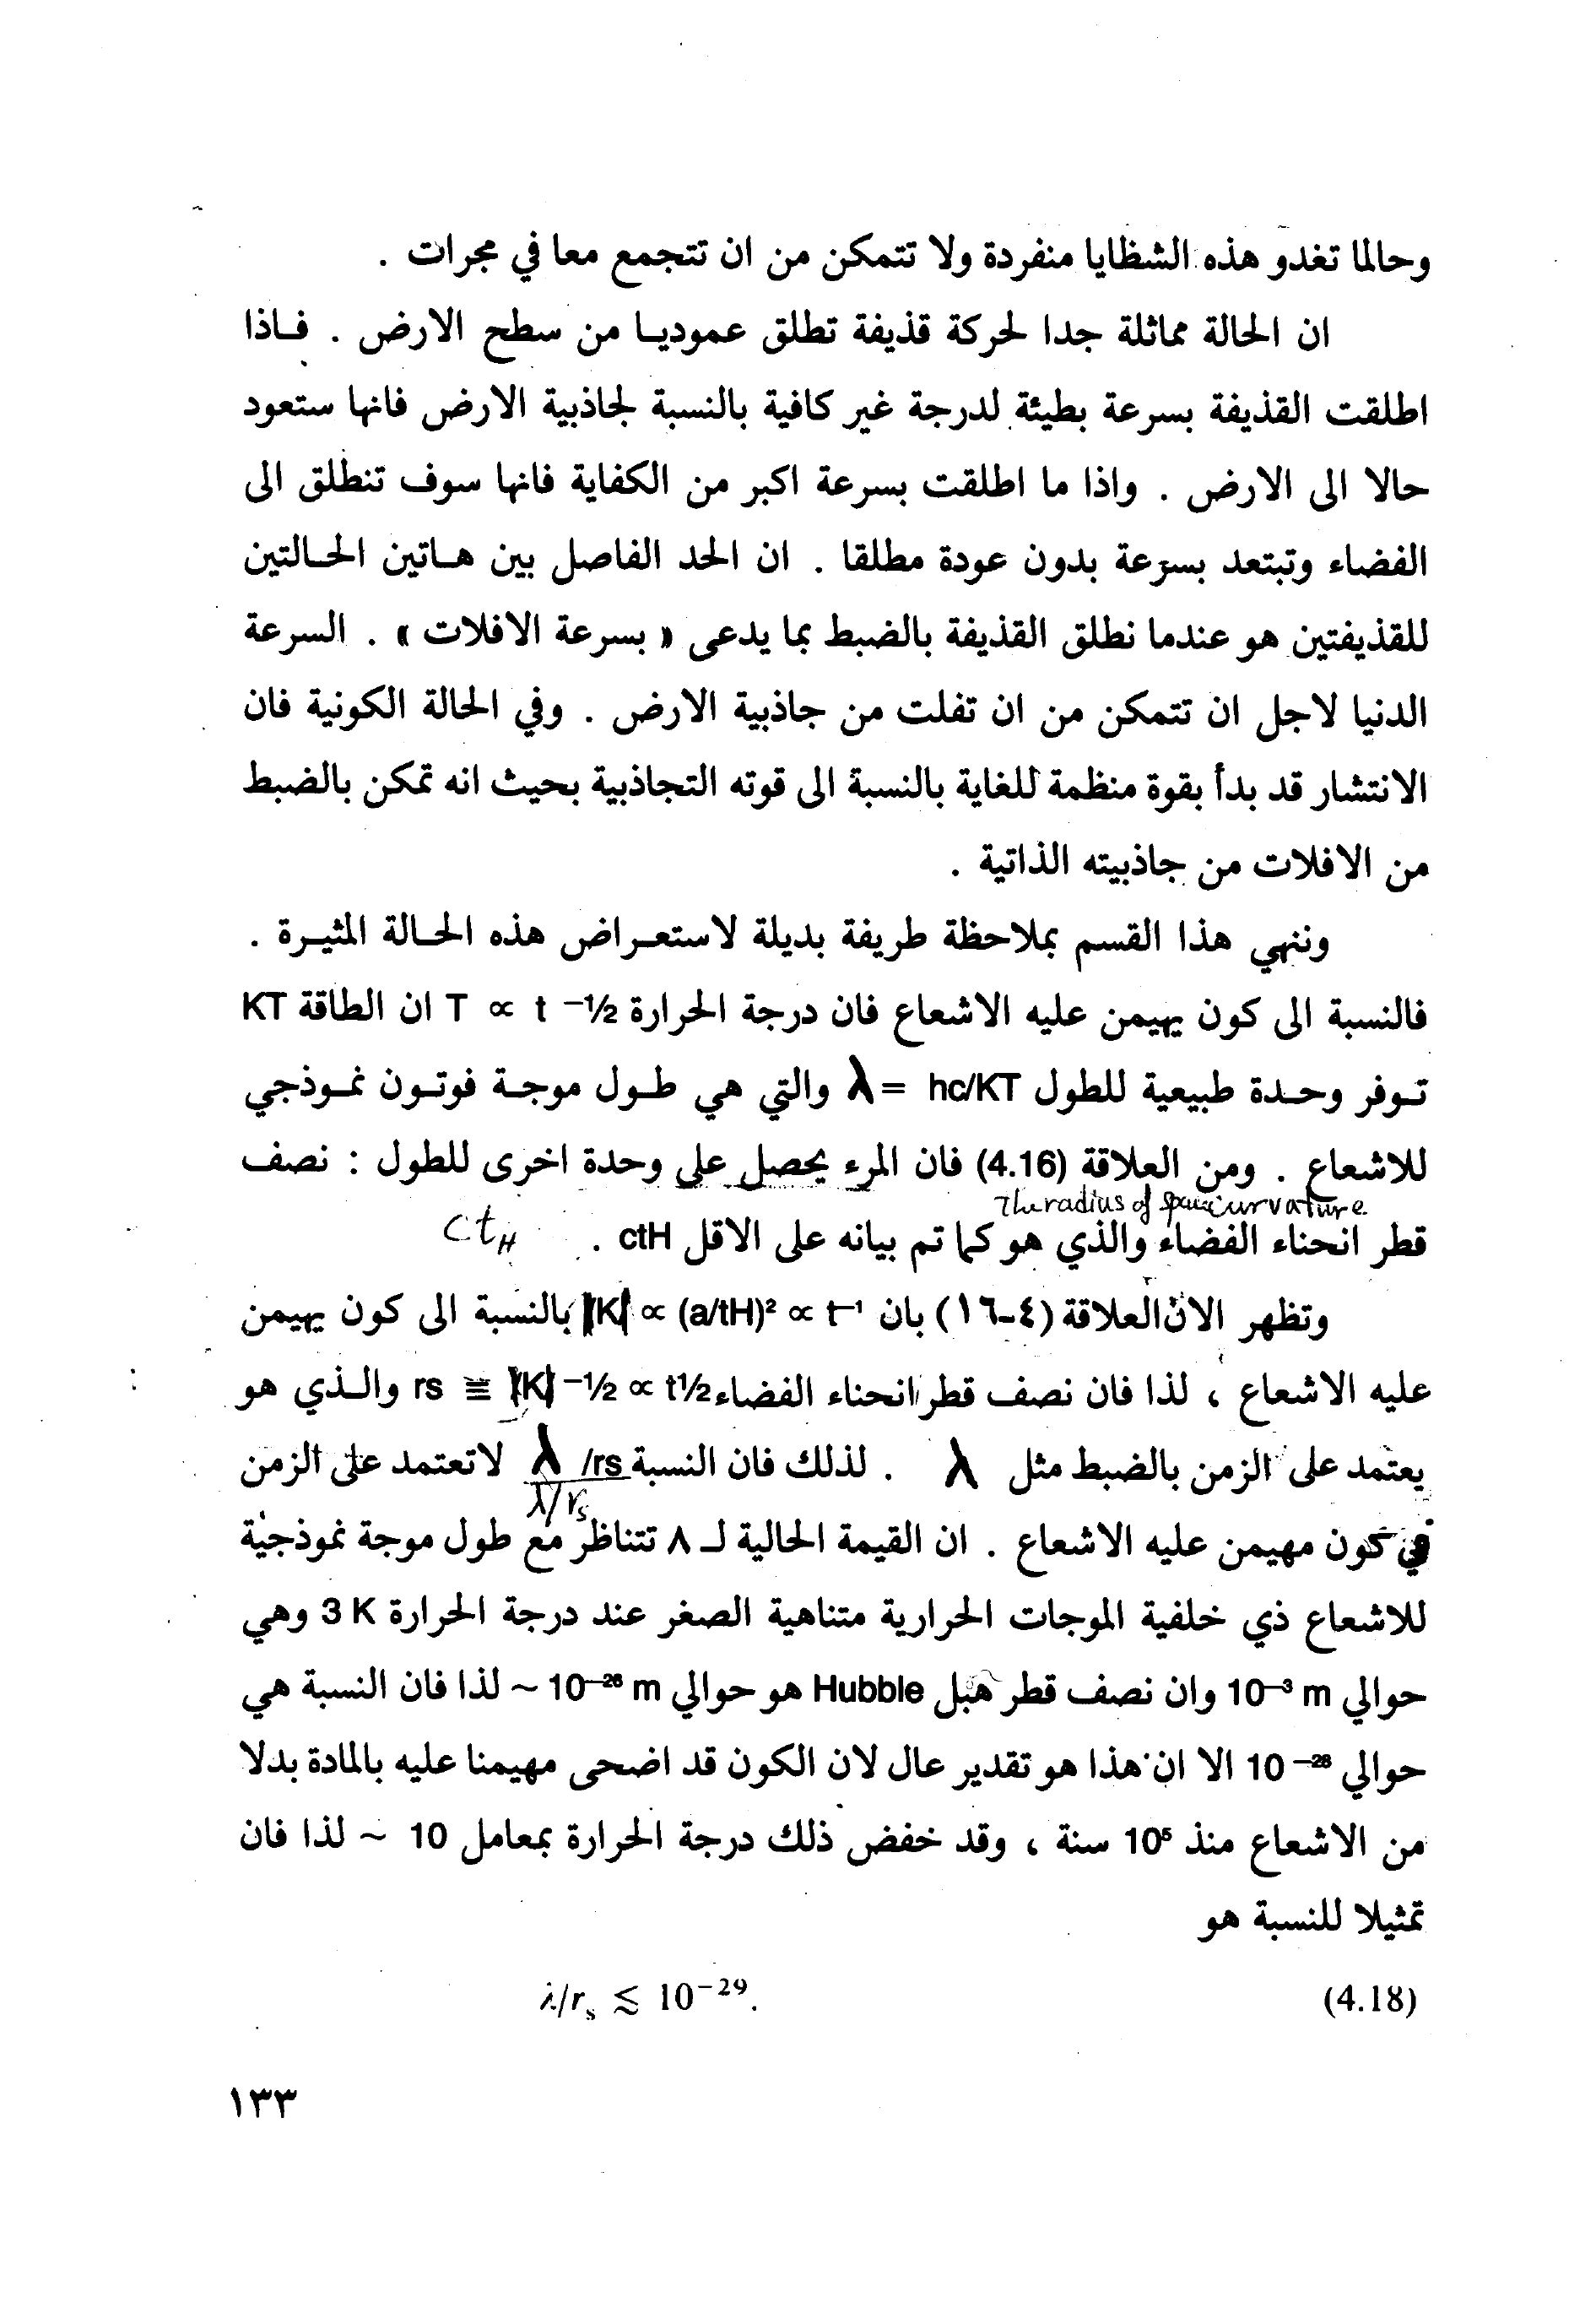 وحالما تغدو هذه الشظايا منفردة ولا تتمكن من ان تتجمع معا في مجرات .
ان الحالة مماثلة جدا لحركة قذيفة تطلق عموديا من سطح الارض . فاذا
اطلقت القذيفة بسرعة بطيئة لدرجة غير كافية بالنسبة لجاذبية الارض فانها ستعود
حالا الى الارض . واذا ما اطلقت بسرعة اكبر من الكفاية فانها سوف تنطلق الى
الفضاء وتبتعد بسرعة بدون عودة مطلقا . ان الحد الفاصل بين هاتين الحالتين
للقذيفتين هو عندما نطلق القذيفة بالضبط بما يدعى « بسرعة الافلات » . السرعة
الدنيا لاجل ان تتمكن من ان تفلت من جاذبية الارض . وفي الحالة الكونية فان
الانتشار قد بدأ بقوة منظمة للغاية بالنسبة الى قوته التجاذبية بحيث انه تمكن بالضبط
من الافلات من جاذبيته الذاتية .
وننهي هذا القسم بملاحظة طريفة بديلة لاستعراض هذه الحالة المثيرة .
فالنسبة الى كون يهيمن عليه الاشعاع فان درجة الحرارة T ∝ t –½ ان الطاقة KT
توفر وحدة طبيعية للطول λ = hc/KT والتي هي طول موجة فوتون نموذجي
للاشعاع . ومن العلاقة (4.16) فان المرء يحصل على وحدة اخرى للطول : نصف
The radius of space curvature
قطر انحناء الفضاء والذي هو كما تم بيانه على الاقل ctH . ct_H
وتظهر الان العلاقة (٤-١٦) بان |K| ∝ (a/tH)² ∝ t–¹ بالنسبة الى كون يهيمن
عليه الاشعاع ، لذا فان نصف قطر انحناء الفضاء rs ≡ |K| –½ ∝ t½ والذي هو
يعتمد على الزمن بالضبط مثل λ . لذلك فان النسبة λ /rs لاتعتمد على الزمن
λ/rs
في كون مهيمن عليه الاشعاع . ان القيمة الحالية لـ ٨ تتناظر مع طول موجة نموذجية
للاشعاع ذي خلفية الموجات الحرارية متناهية الصغر عند درجة الحرارة 3 K وهي
حوالي 10–³ m وان نصف قطر هبل Hubble هو حوالي 10–²⁶ m ~ لذا فان النسبة هي
حوالي 10 –²⁸ الا ان هذا هو تقدير عال لان الكون قد اضحى مهيمنا عليه بالمادة بدلا
من الاشعاع منذ 10⁵ سنة ، وقد خفض ذلك درجة الحرارة بمعامل 10 ~ لذا فان
تمثيلا للنسبة هو
λ/rₛ ≲ 10⁻²⁹. (4.18)
١٣٣